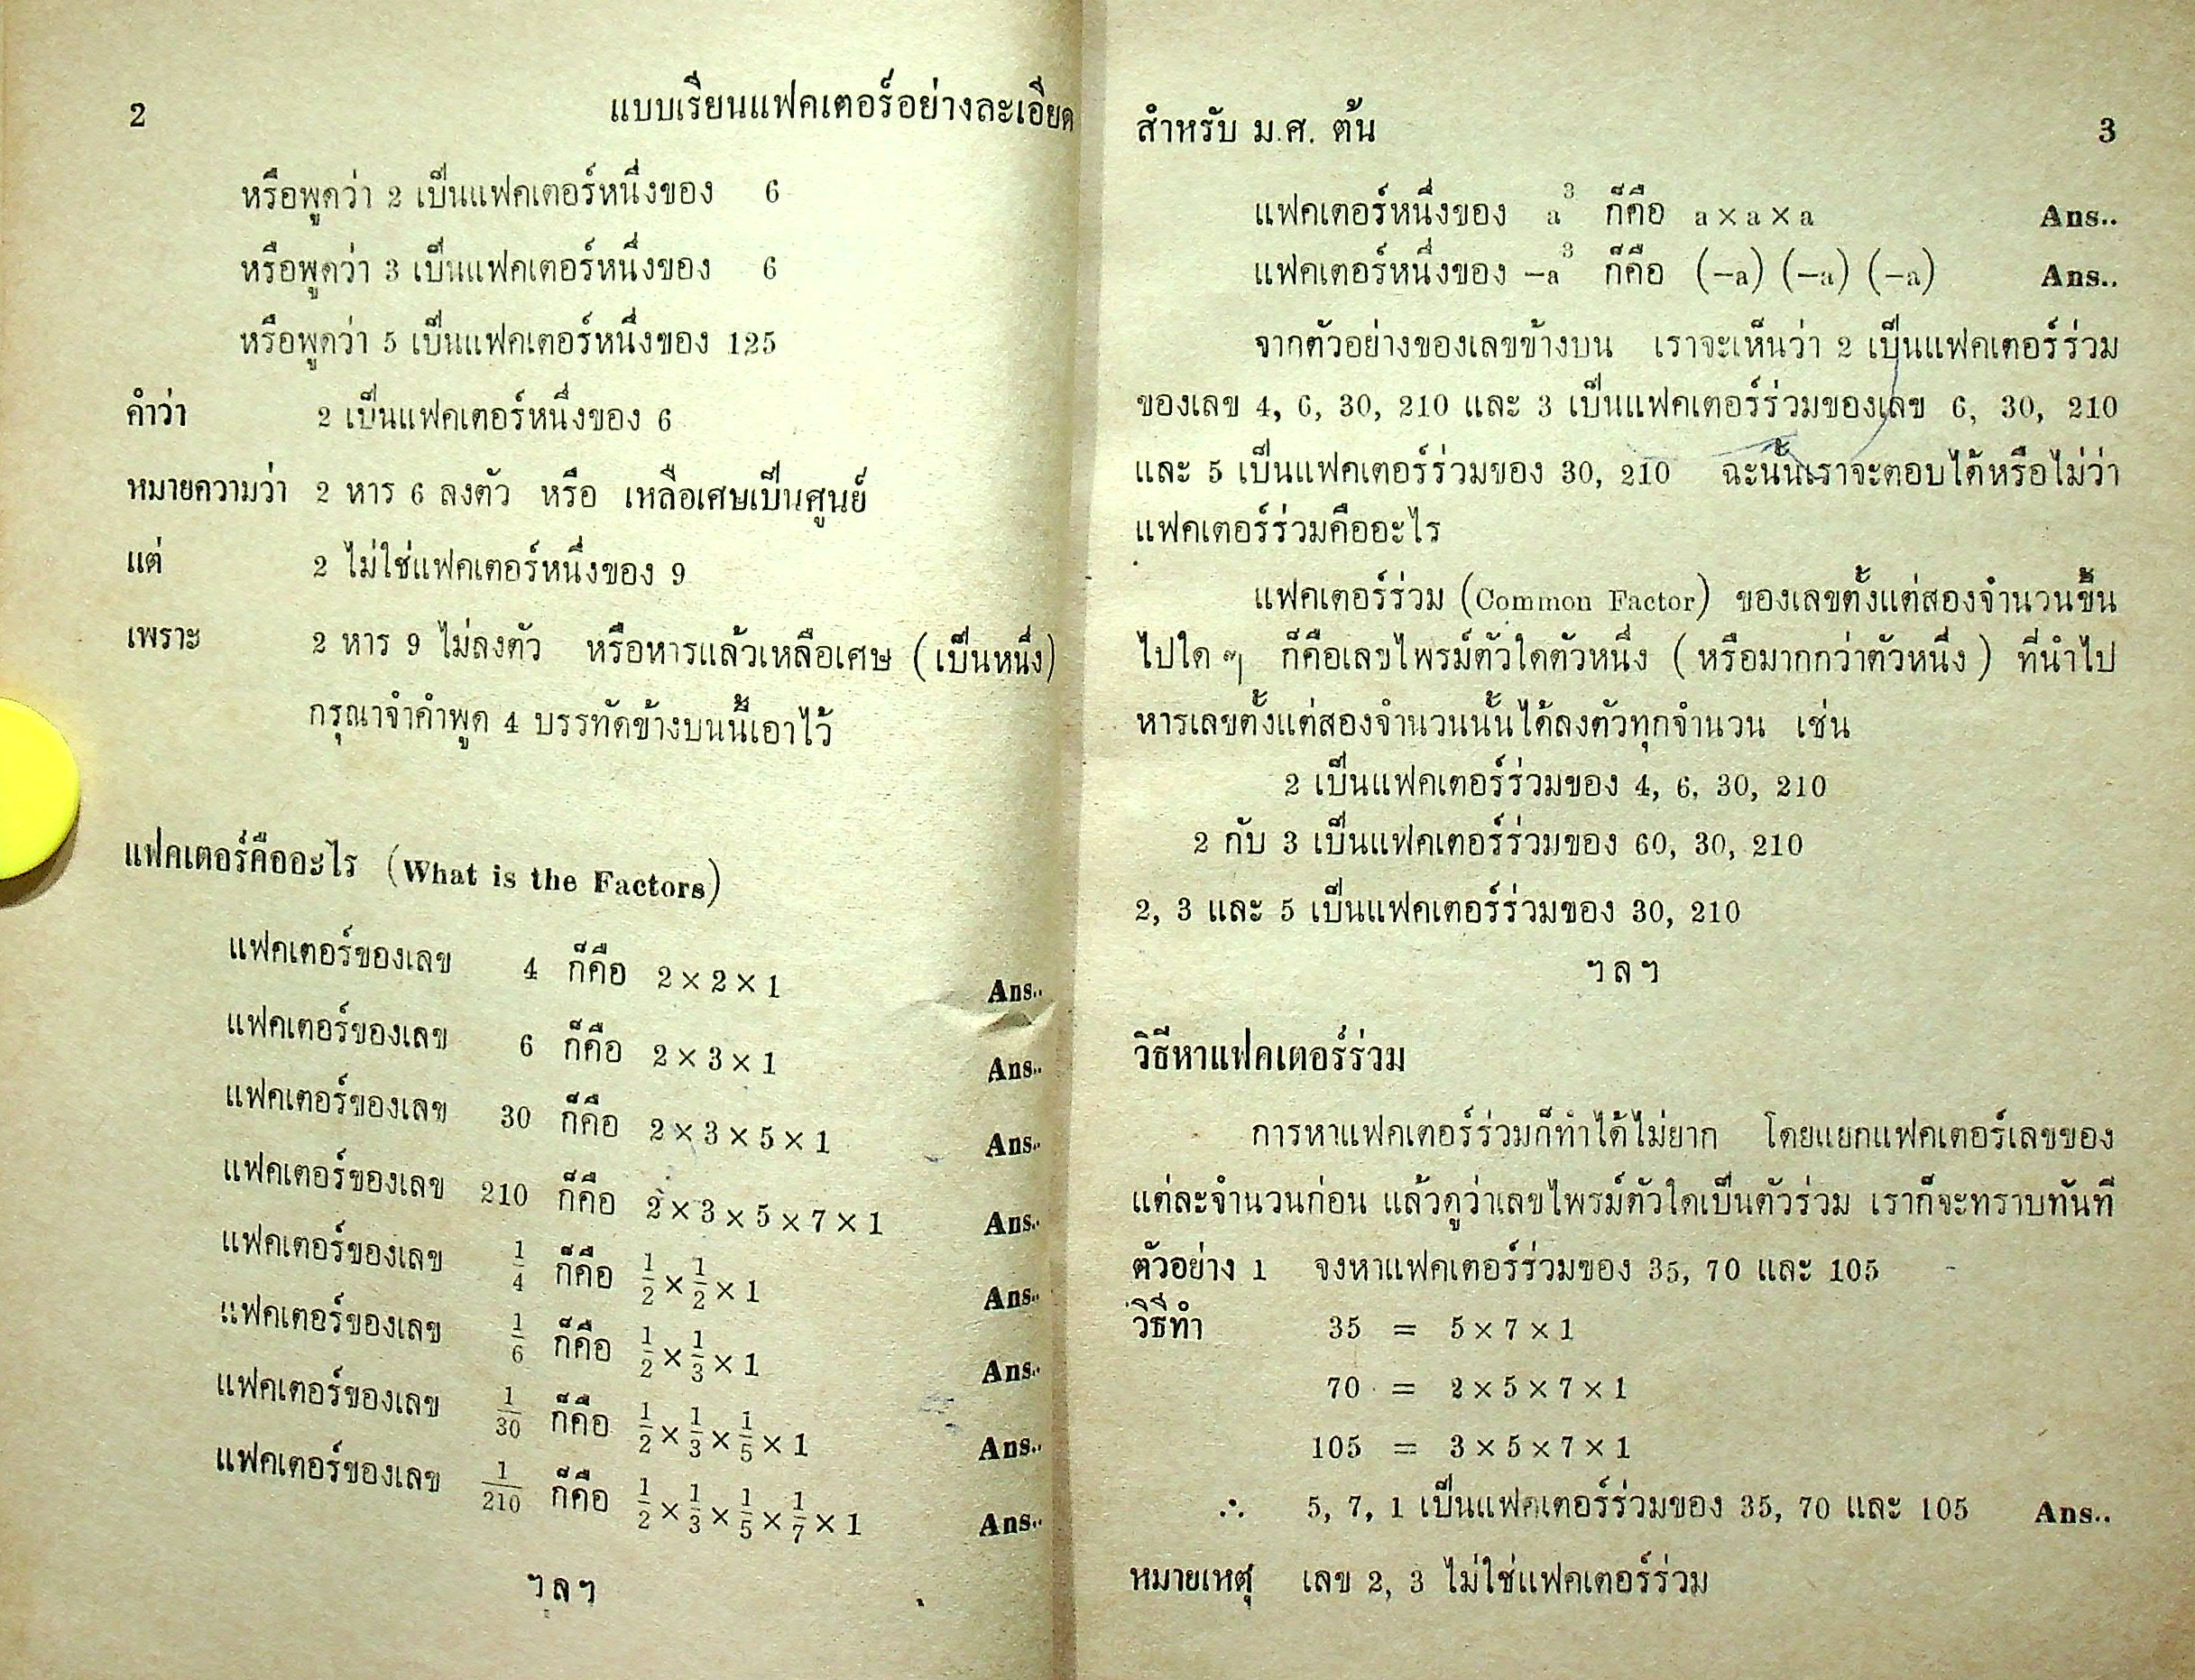 2 แบบเรียนแฟคเตอร์อย่างละเอียด
หรือพูดว่า 2 เป็นแฟคเตอร์หนึ่งของ 6
หรือพูดว่า 3 เป็นแฟคเตอร์หนึ่งของ 6
หรือพูดว่า 5 เป็นแฟคเตอร์หนึ่งของ 125
คำว่า 2 เป็นแฟคเตอร์หนึ่งของ 6
หมายความว่า 2 หาร 6 ลงตัว หรือ เหลือเศษเป็นศูนย์
แต่ 2 ไม่ใช่แฟคเตอร์หนึ่งของ 9
เพราะ 2 หาร 9 ไม่ลงตัว หรือหารแล้วเหลือเศษ (เป็นหนึ่ง)
กรุณาจำคำพูด 4 บรรทัดข้างบนนี้เอาไว้
แฟคเตอร์คืออะไร (What is the Factors)
แฟคเตอร์ของเลข 4 ก็คือ 2 × 2 × 1 Ans..
แฟคเตอร์ของเลข 6 ก็คือ 2 × 3 × 1 Ans..
แฟคเตอร์ของเลข 30 ก็คือ 2 × 3 × 5 × 1 Ans..
แฟคเตอร์ของเลข 210 ก็คือ 2 × 3 × 5 × 7 × 1 Ans..
แฟคเตอร์ของเลข 1/4 ก็คือ 1/2 × 1/2 × 1 Ans..
แฟคเตอร์ของเลข 1/6 ก็คือ 1/2 × 1/3 × 1 Ans..
แฟคเตอร์ของเลข 1/30 ก็คือ 1/2 × 1/3 × 1/5 × 1 Ans..
แฟคเตอร์ของเลข 1/210 ก็คือ 1/2 × 1/3 × 1/5 × 1/7 × 1 Ans..
ฯลฯ
สำหรับ ม.ศ. ต้น 3
แฟคเตอร์หนึ่งของ a³ ก็คือ a × a × a Ans..
แฟคเตอร์หนึ่งของ –a³ ก็คือ (–a) (–a) (–a) Ans..
จากตัวอย่างของเลขข้างบน เราจะเห็นว่า 2 เป็นแฟคเตอร์ร่วม
ของเลข 4, 6, 30, 210 และ 3 เป็นแฟคเตอร์ร่วมของเลข 6, 30, 210
และ 5 เป็นแฟคเตอร์ร่วมของ 30, 210 ฉะนั้นเราจะตอบได้หรือไม่ว่า
แฟคเตอร์ร่วมคืออะไร
แฟคเตอร์ร่วม (Common Factor) ของเลขตั้งแต่สองจำนวนขึ้น
ไปใด ๆ ก็คือเลขไพรม์ตัวใดตัวหนึ่ง (หรือมากกว่าตัวหนึ่ง) ที่นำไป
หารเลขตั้งแต่สองจำนวนนั้นได้ลงตัวทุกจำนวน เช่น
2 เป็นแฟคเตอร์ร่วมของ 4, 6, 30, 210
2 กับ 3 เป็นแฟคเตอร์ร่วมของ 60, 30, 210
2, 3 และ 5 เป็นแฟคเตอร์ร่วมของ 30, 210
ฯลฯ
วิธีหาแฟคเตอร์ร่วม
การหาแฟคเตอร์ร่วมก็ทำได้ไม่ยาก โดยแยกแฟคเตอร์เลขของ
แต่ละจำนวนก่อน แล้วดูว่าเลขไพรม์ตัวใดเป็นตัวร่วม เราก็จะทราบทันที
ตัวอย่าง 1 จงหาแฟคเตอร์ร่วมของ 35, 70 และ 105
วิธีทำ 35 = 5 × 7 × 1
70 = 2 × 5 × 7 × 1
105 = 3 × 5 × 7 × 1
∴ 5, 7, 1 เป็นแฟคเตอร์ร่วมของ 35, 70 และ 105 Ans..
หมายเหตุ เลข 2, 3 ไม่ใช่แฟคเตอร์ร่วม